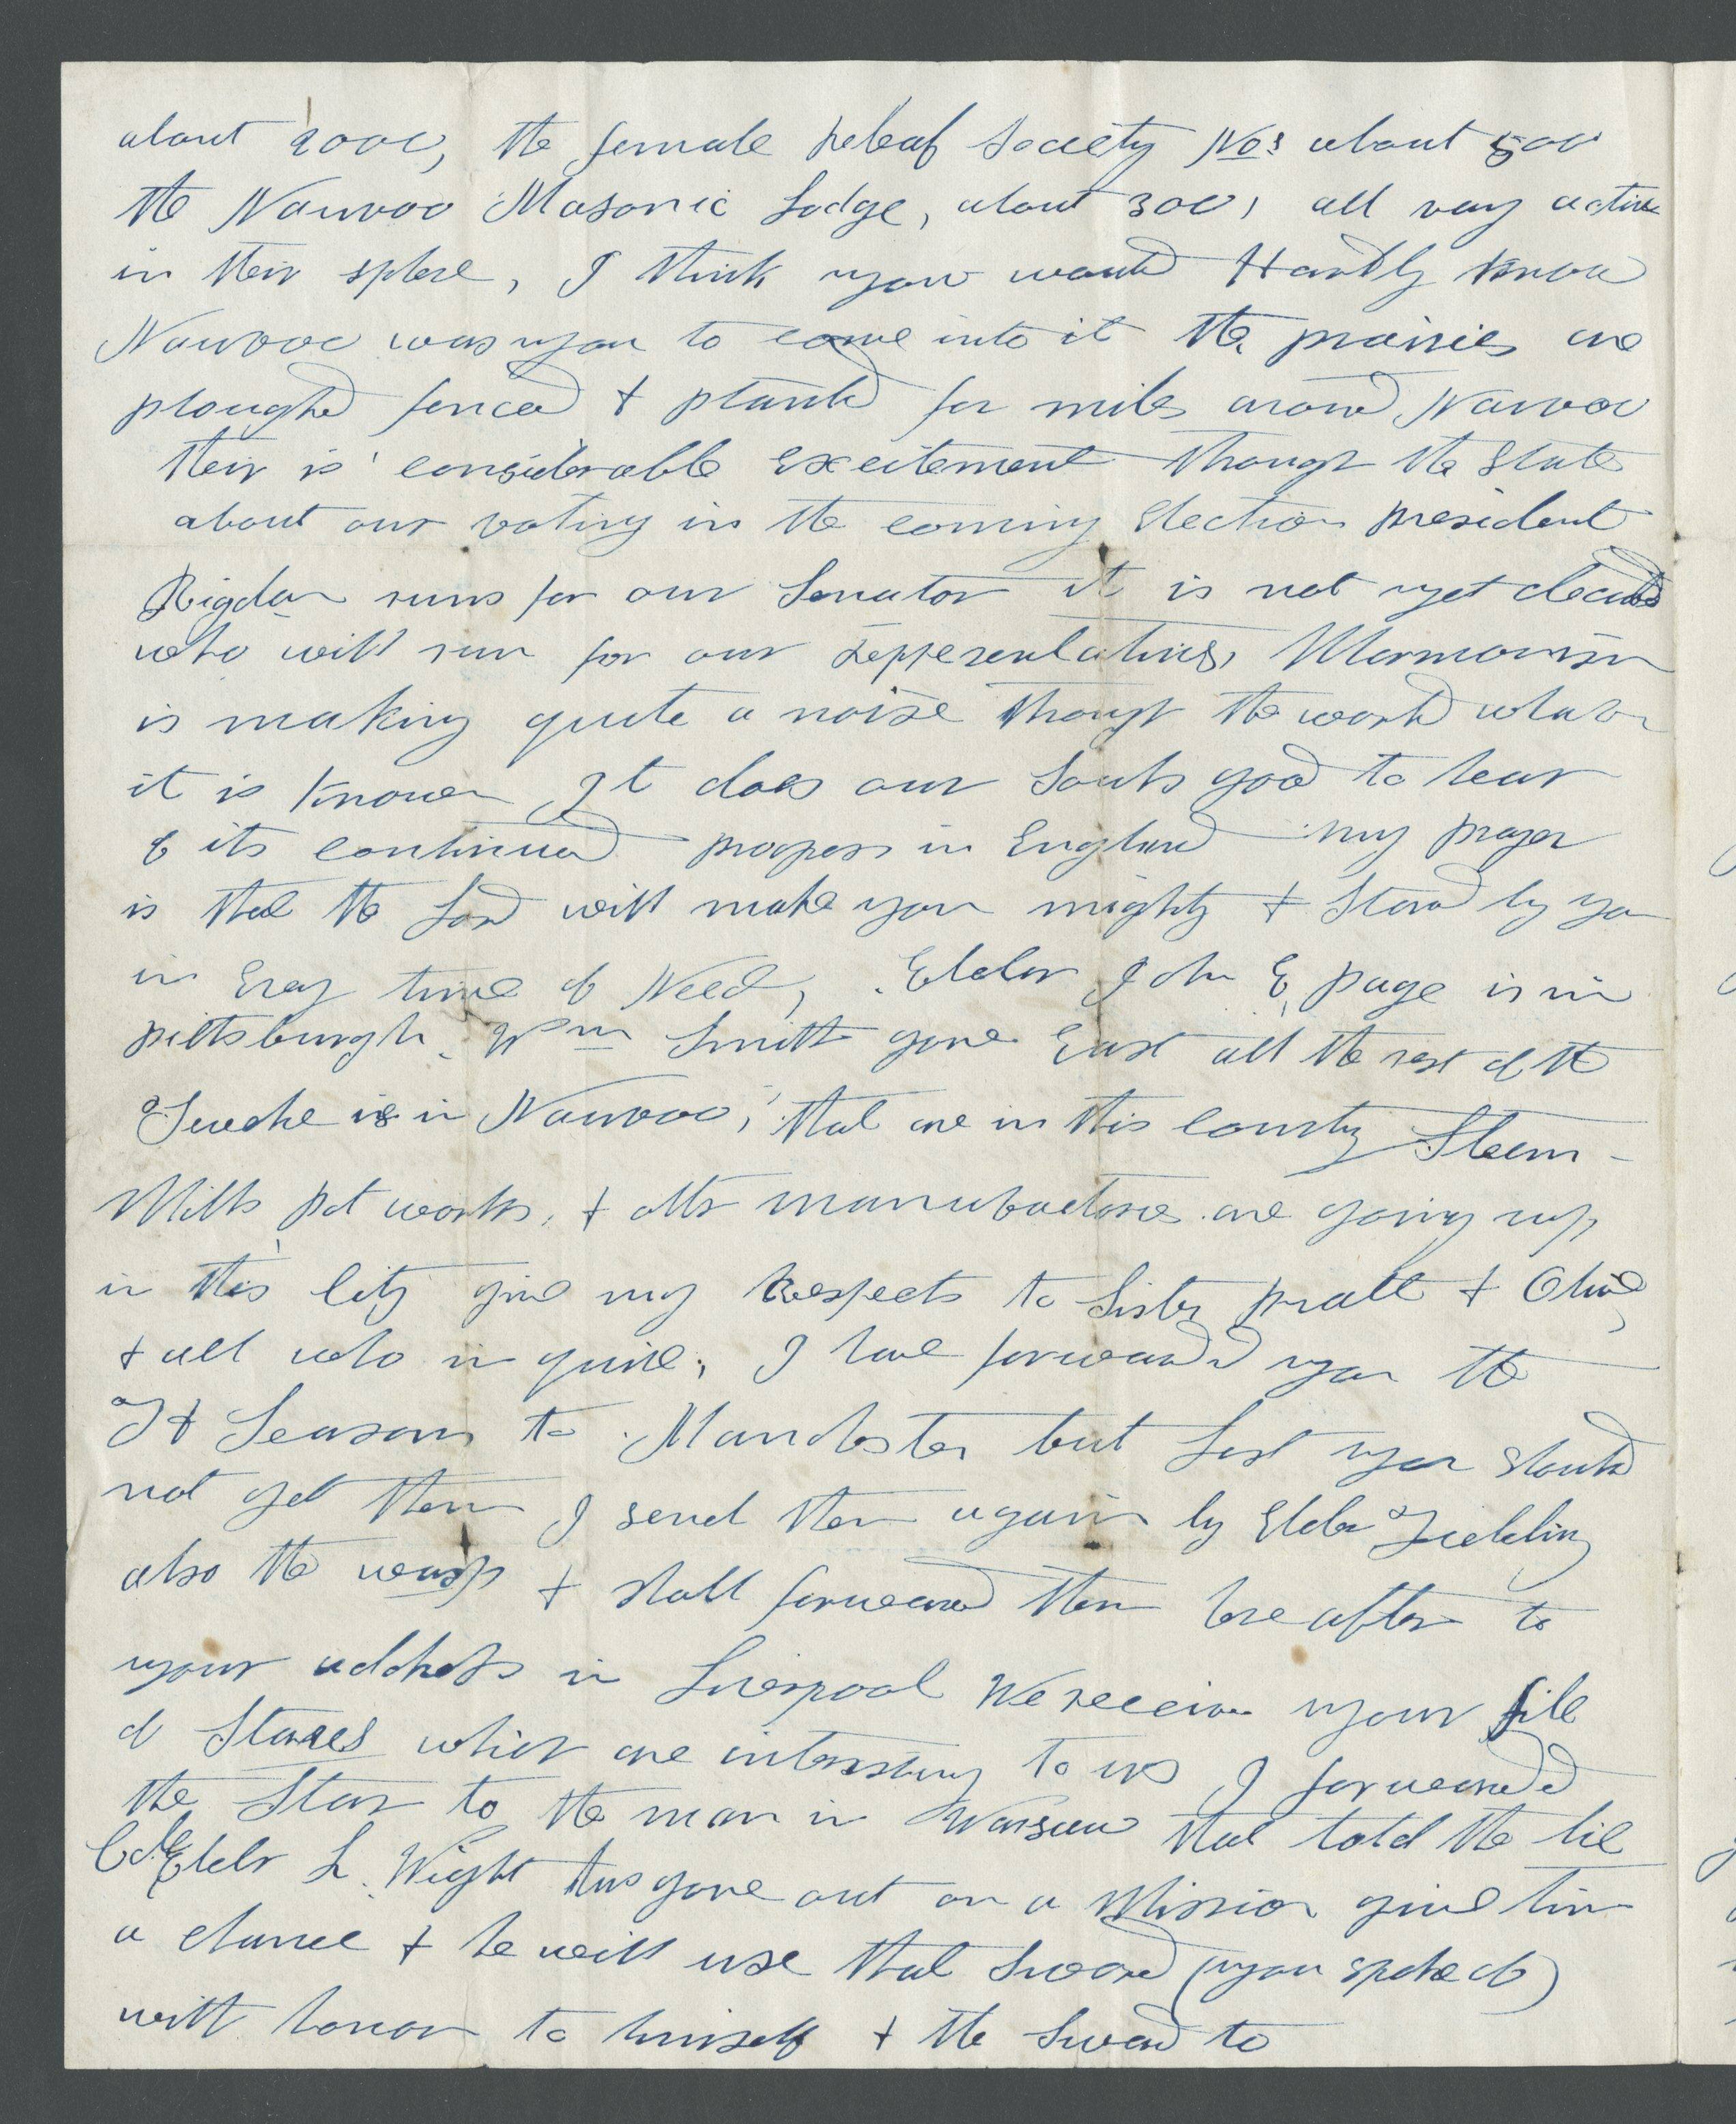 about 2000, the female Releaf Society Nos about 500
the Nauvoo Masonic Lodge, about 300, all very active
in their sphere, I think you would Hardly know
Nauvoo was you to come into it the prairies are
ploughed fenced & planted for miles around Nauvoo
their is considerable excitement through the State
about our voting in the coming Election president
Rigdon runs for our Senator it is not yet decided
who will run for our Representatives, Mormonism
is making quite a noise through the world whare
it is known It does our Souls good to hear
of its continued progress in England my prayer
is that the Lord will make you mighty & Stand by you
in Evry time of Need, Elder John E, page is in
pittsburgh. Wm Smith gone East all the rest of the
Twelve is in Nauvoo, that are in this country Steem-
Mills pot works, & other manufactories are going up
in this City give my Respects to Sister pratt & Olive
& all who inquire, I have forwarded you the
T & Seasons to Manchester but Lest you should
not get them I send them again by Elder Fielding
also the wasp & shall forward them here after to
your address in Liverpool We receive your file
of Stares which are interesting to us I forwarded
the Star to the man in Warsaw that told the lie
Elder L. Wight has gone out on a Mission give him
a chance & he will use that Sword (you spoke of)
with honor to himself & the Sword to